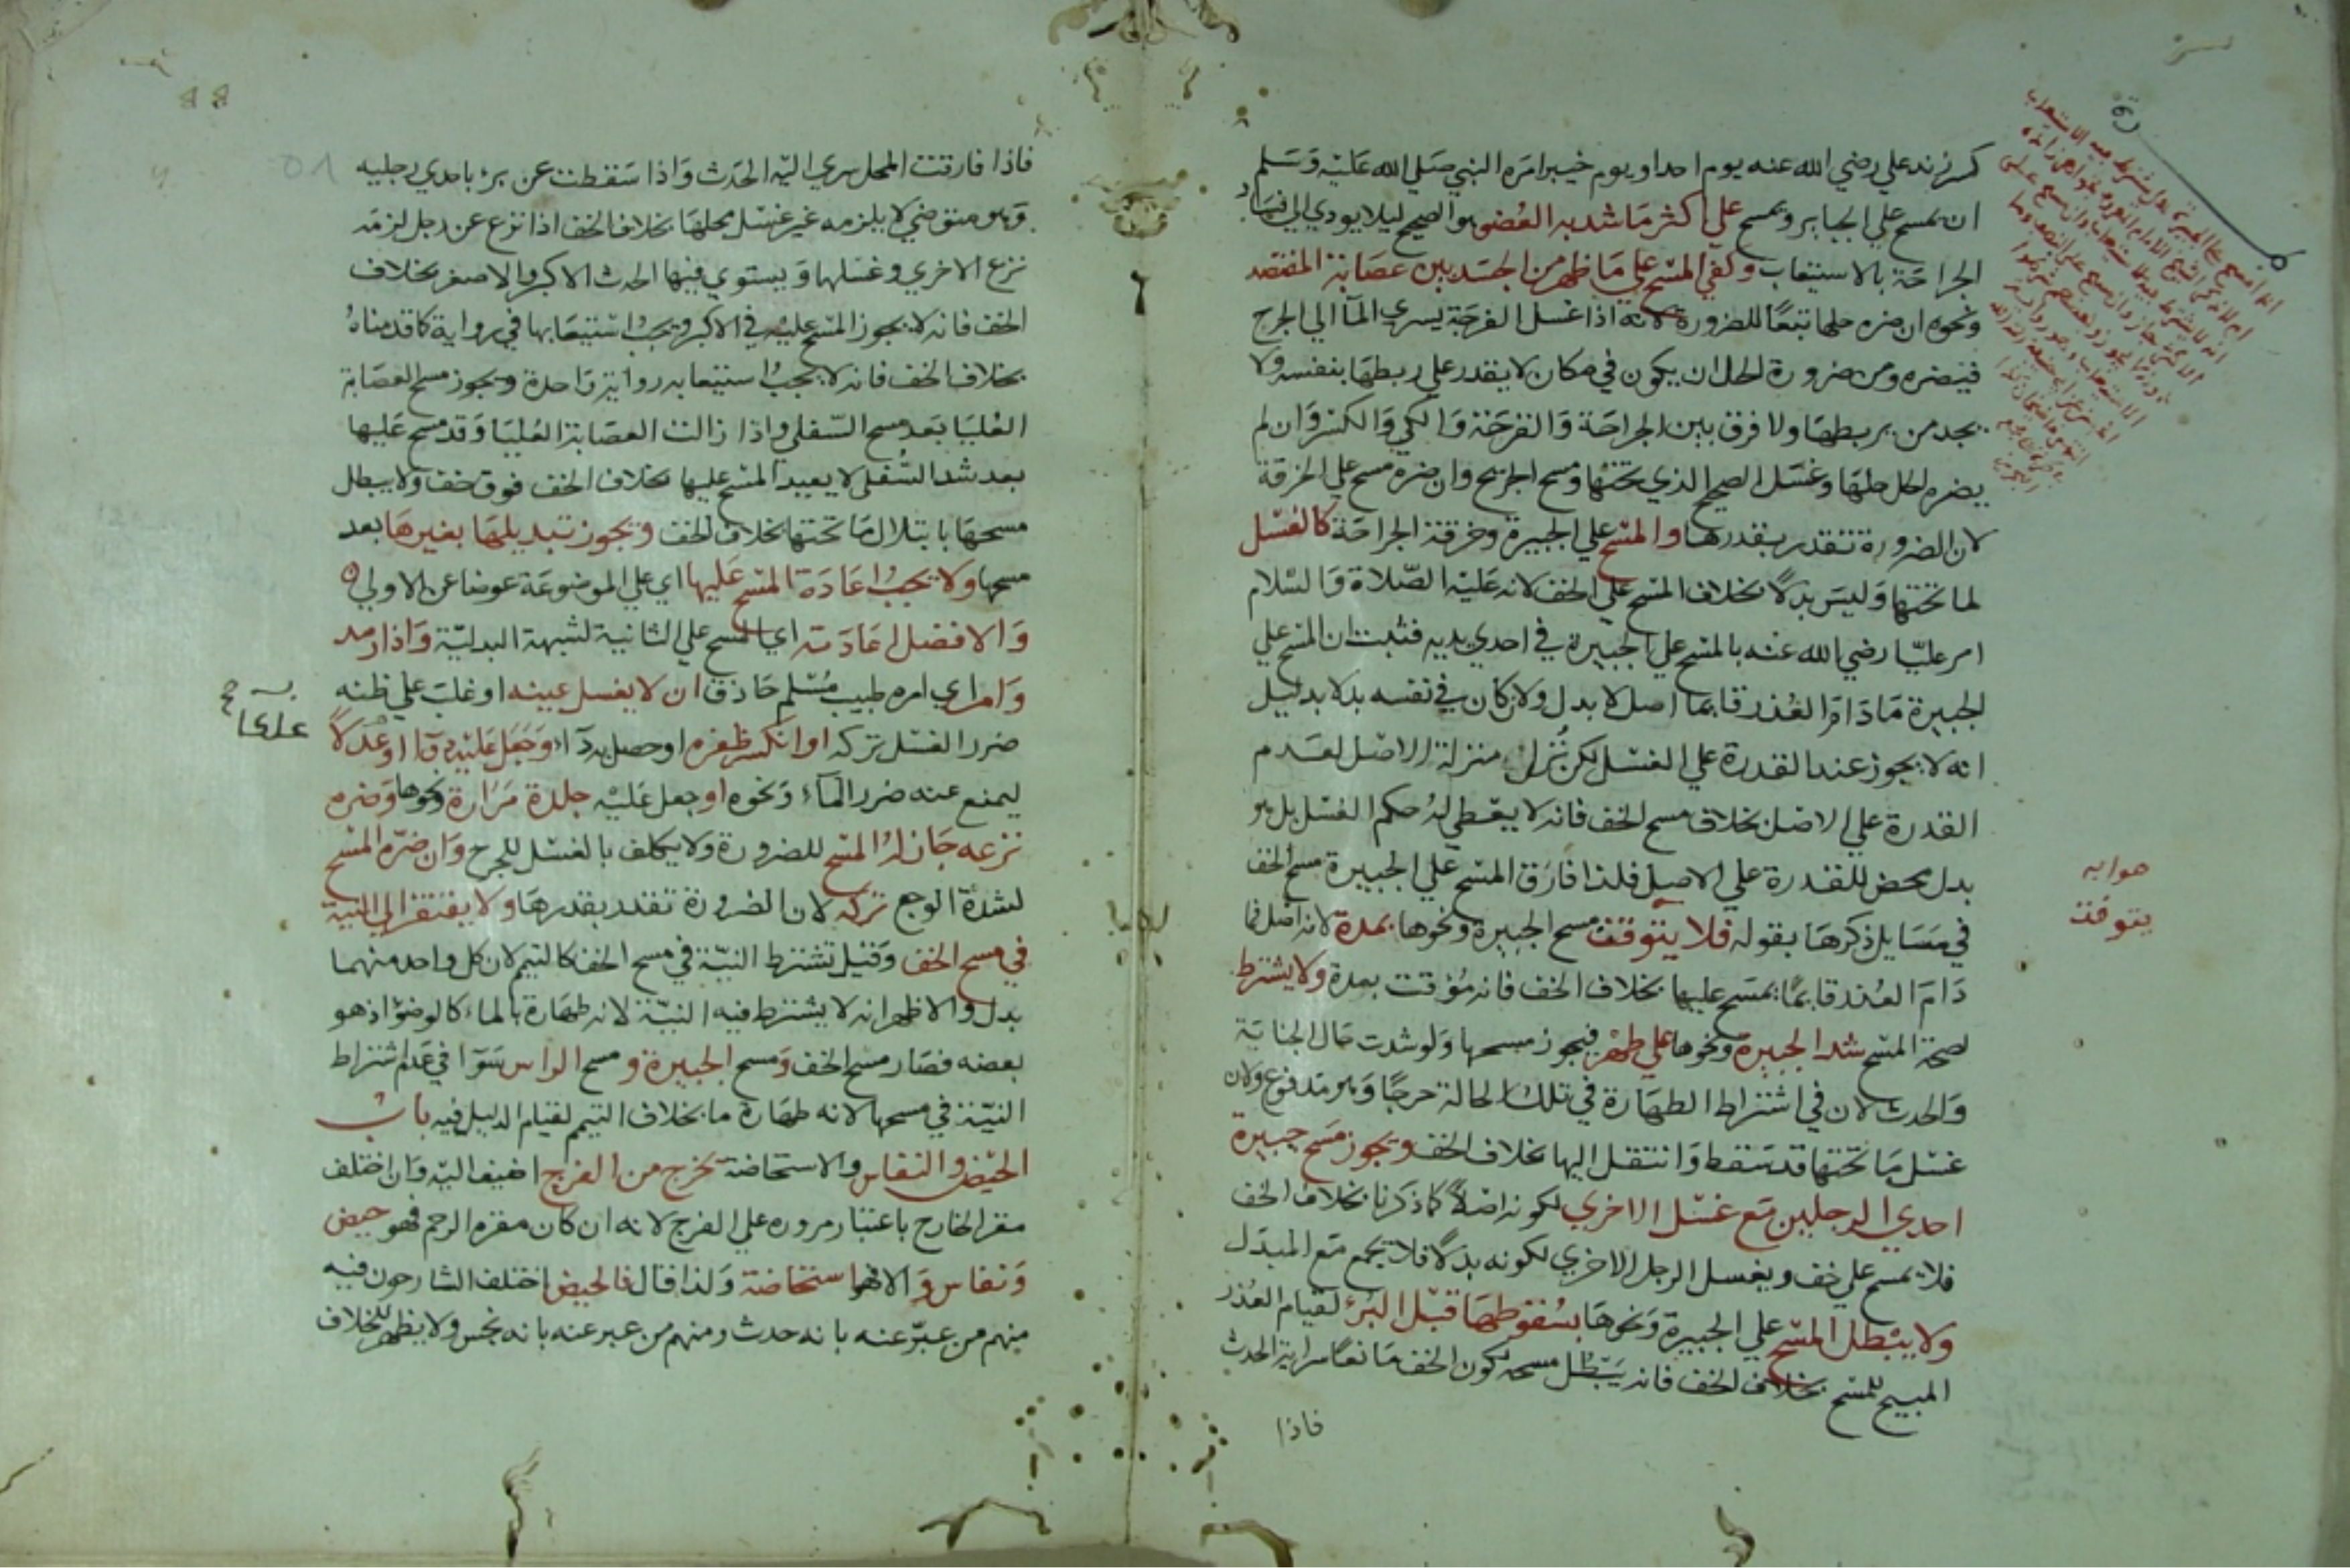 كسر زند علي رضي الله عنه يوم احد او يوم خيبر امره النبي صلي الله عليه وسلم
ان يمسح علي الجباير ويمسح علي اكثر ما شد به العضو هو الصحيح ليلا يودي الي فساد
الجراحة بالاستيعاب وكفي المسح علي ما ظهر من الجسد بين عصابة المفتصد
ونحوه ان ضره حلها تبعا للضرورة لانه اذا غسل الفرجة يسري المآ الي الجرح
فيضره ومن ضرورة الحل ان يكون في مكان لا يقدر علي ربطها بنفسه ولا
يجد من يربطها ولا فرق بين الجراحة والقرحة والكي والكسر وان لم
يضره الحل حلها وغسل الصحيح الذي تحتها ومسح الجريح وان ضره مسح علي الخرقة
لان الضرورة تتقدر بقدرها والمسح علي الجبيرة وخرقة الجراحة كالغسل
لما تحتها وليس بدلا بخلاف المسح علي الخف لانه عليه الصلاة والسلام
امر عليا رضي الله عنه بالمسح علي الجبيرة في احدي يديه فثبت ان المسح علي
الجبيرة ما دام العذر قايما اصل لا بدل ولان كان في نفسه بدلا بدليل
انه لا يجوز عند القدرة علي الغسل لكن نُزل منزلة الاصل لعدم
القدرة علي الاصل بخلاف مسح الخف فانه لا يعطي له حكم الغسل بل هو
بدل محض للقدرة علي الاصل فلذا فارق المسح علي الجبيرة مسح الخف
في مسايل ذكرها بقوله فلا يتوقف مسح الجبيرة ونحوها بمدة لانه اصل فما
دام العذر قايما يمسح عليها بخلاف الخف فانه مؤقت بمدة ولا يشترط
لصحة المسح شد الجبيرة ونحوها علي طهر فيجوز مسحها ولو شدت حال الجنابة
والحدث لان في اشتراط الطهارة في تلك الحالة حرجا وهو مدفوع ولان
غسل ما تحتها قد سقط وانتقل اليها بخلاف الخف ويجوز مسح جبيرة
احدي الرجلين مع غسل الاخري لكونه اصلا كما ذكرنا بخلاف الخف
فلا يمسح علي خف ويغسل الرجل الاخري لكونه بدلا فلا يجمع مع المبدل
ولا يبطل المسح علي الجبيرة ونحوها بسقوطها قبل البرء لقيام العذر
المبيح للمسح بخلاف الخف فانه يبطل مسحه لكون الخف مانعا سراية الحدث
فاذا
صوابه
يتوقت
فاذا فارقت المحل سري اليه الحدث واذا سقطت عن برء باحدي رجليه
وهو متوضي لا يلزمه غير غسل محلها بخلاف الخف اذا نزع عن رجل لزمه
نزع الاخري وغسلها ويستوي فيها الحدث الاكبر والاصغر بخلاف
الخف فانه لا يجوز المسح عليه في الاكبر ويجب استيعابها في رواية كما قدمناه
بخلاف الخف فانه لا يجب استيعابه رواية واحدة ويجوز مسح العصابة
العليا بعد مسح السفلي واذا زالت العصابة العليا وقد مسح عليها
بعد شد السفلي لا يعيد المسح عليها بخلاف الخف فوق خف ولا يبطل
مسحها بابتلال ما تحتها بخلاف الخف ويجوز تبديلها بغيرها بعد
مسحها ولا يجب اعادة المسح عليها اي علي الموضوعة عوضا عن الاولي
والافضل اعادته اي المسح علي الثانية لشبهة البدلية واذا رمد
وامر اي امره طبيب مسلم حاذق ان لا يغسل عينه او غلب علي ظنه
ضرر الغسل تركه او انكسر ظفره او حصل به دآء وجعل عليه دوآ او علكا
ليمنع عنه ضرر المآء ونحوه او جعل عليه جلدة مرارة ونحوها وضره
نزعه جاز له المسح للضرورة ولا يكلف بالغسل للجرح وان ضره المسح
لشدة الوجع تركه لان الضرورة تقدر بقدرها ولا يفتقر الي النية
في مسح الخف وقيل تشترط النية في مسح الخف كالتيمم لان كل واحد منهما
بدل والاظهر انه لا يشترط فيه النية لانه طهارة بالماء كالوضوء اذ هو
بعضه فصار مسح الخف ومسح الجبيرة ومسح الراس سوآ في عدم اشتراط
النية في مسحها لانه طهارة ما بخلاف التيمم لقيام الدليل فيه باب
الحيض والنفاس والاستحاضة يخرج من الفرج اضيف اليه وان اختلف
مقر الخارج باعتبار مروره علي الفرج لانه ان كان مقره الرحم فهو حيض
ونفاس والا فهو استحاضة ولذا قال فالحيض اختلف الشارحون فيه
منهم من عبر عنه بانه حدث ومنهم من عبر عنه بانه نجس ولا يظهر للخلاف
علكا